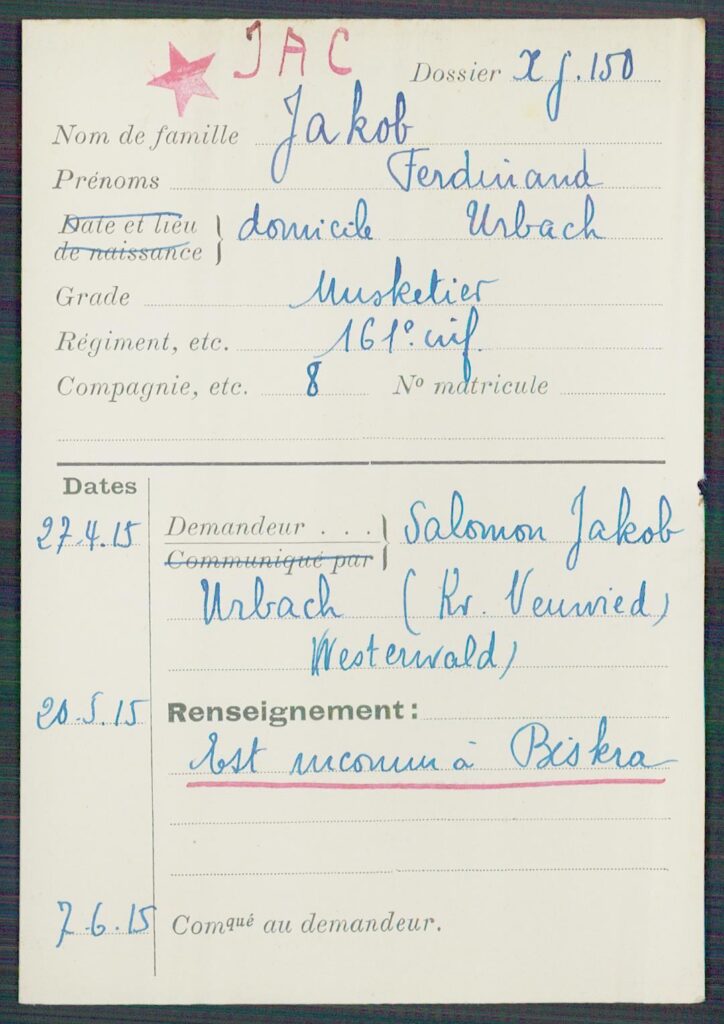 JAC
Dossier X J. 150
Nom de famille Jakob
Prénoms Ferdinand
Date et lieu de naissance } domicile Urbach
Grade Musketier
Régiment, etc. 161e. inf.
Compagnie, etc. 8 No matricule
Dates
27.4.15 Demandeur . . . } Salomon Jakob
Communiqué par
Urbach (Kr. Neuwied)
Westerwald)
20.5.15 Renseignement:
Est inconnu à Biskra
7.6.15 Comqué au demandeur.